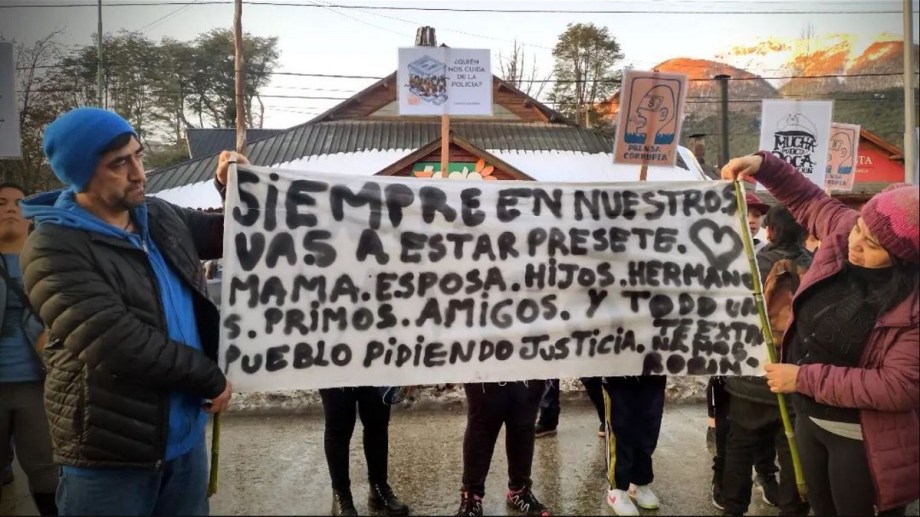 ¿QUIÉN
NOS CUIDA
DE LA
POLICIA?
PRENSA
CORRUPTA
MUCHA
POCA
SIEMPRE EN NUESTROS
VAS A ESTAR PRESETE. ♡
MAMA. ESPOSA. HIJOS. HERMANO
S. PRIMOS. AMIGOS. Y TODO UN
PUEBLO PIDIENDO JUSTICIA.
TE EXTRA
ÑAMOS.
ROBIN.